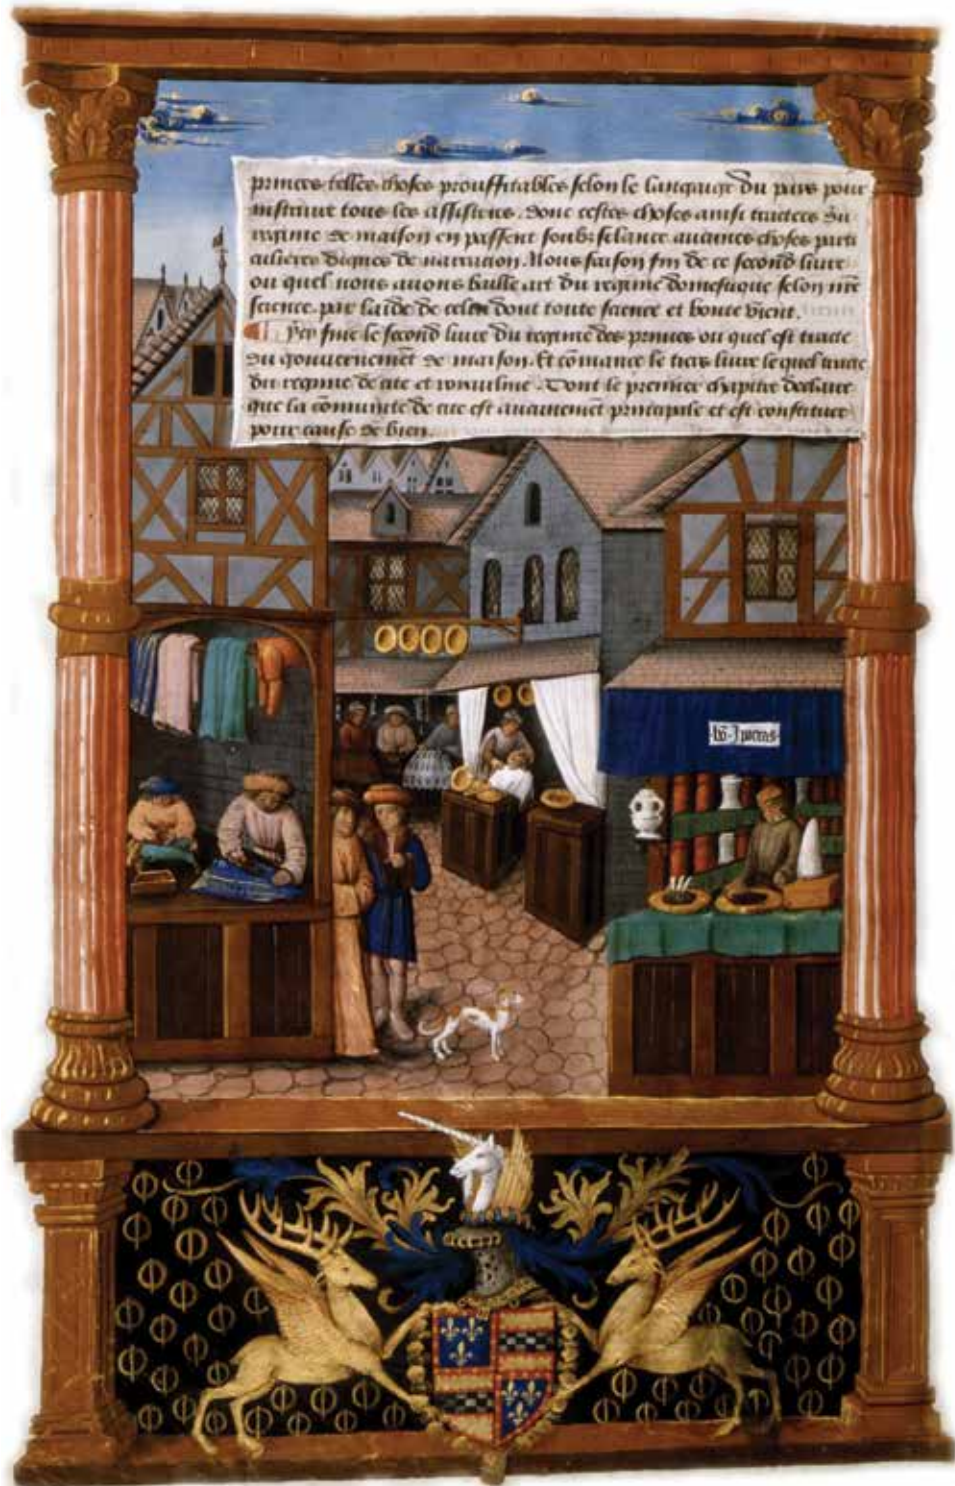 princes telles choses prouffitables selon le langaige du pais pour
instruire tous les assistens. Donc cestes choses ainsi traictees du
regime de maison en passent soubz silance aucunes choses parti
culieres dignes de narracion. Nous faison fin de ce second livre
ou quel nous avons baille art du regime domestique selon nr̄e
science. par laide de celui dont toute science et bonte vient.
Cy fine le second livre du regime des princes ou quel est traicte
du gouvernemēt de maison. Et cōmance le tiers livre le quel traicte
du regime de cite et Dont le premier chapitre declaire
que la cōmunite de cite est aucunemēt principale et est constituee
pour cause de bien.
bō Ipocras